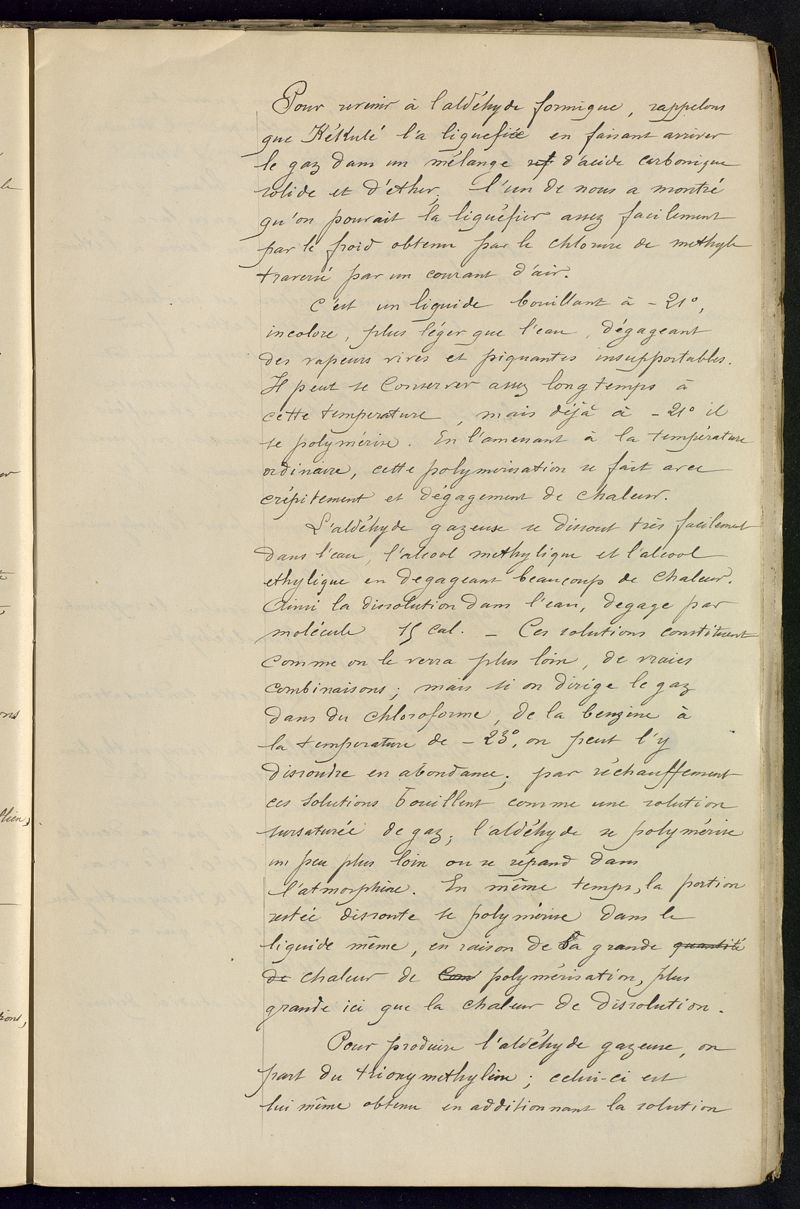 Pour revenir à l'aldéhyde formique, rappelons
que Kékulé l'a liquefiée en faisant arriver
le gaz dans un mélange d'acide carbonique
solide et d'éther. L'un de nous a montré
qu'on pourait la liquéfier assez facilement
par le froid obtenu par le chlorure de methyle
traversé par un courant d'air.
C'est un liquide bouillant à -21°,
incolore, plus léger que l'eau, dégageant
des vapeurs vives et piquantes insupportables.
Il peut se conserver assez longtemps à
cette température, mais déjà à -21° il
se polymérise. En l'amenant à la température
ordinaire, cette polymérisation se fait avec
crépitement et dégagement de chaleur.
L'aldéhyde gazeuse se dissout très facilement
dans l'eau, l'alcool methylique et l'alcool
ethylique en degageant beaucoup de chaleur.
Ainsi la dissolution dans l'eau, degage par
molécule 15 cal. - Ces solutions constituent
comme on le verra plus loin, de vraies
combinaisons; mais si on dirige le gaz
dans du chloroforme, de la benzine à
la température de -23°, on peut l'y
dissoudre en abondance; par réchauffement
ces solutions bouillent comme une solution
sursaturée de gaz; l'aldéhyde se polymérise
un peu plus loin ou se répand dans
l'atmosphère. En même temps, la portion
restée dissoute se polymérise dans le
liquide même, en raison de la grande quantité
de chaleur de polymérisation, plus
grande ici que la chaleur de dissolution.
Pour produire l'aldéhyde gazeuse, on
part du trioxymethylène; celui-ci est
lui même obtenu en additionnant la solution